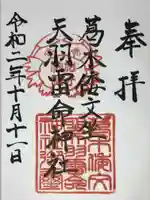 奉拝
葛木倭文坐
天羽雷命神社
令和二年十月十一日